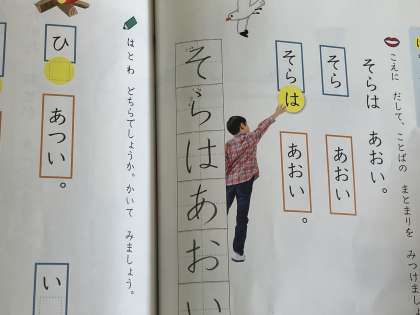 こえに だして、ことばの まとまりを みつけまし
そらは あおい。
そら
あおい
そらは
あおい。
そらはあおい
はとわ どちらでしょうか。かいて みましょう。
ひ
あつい。
い